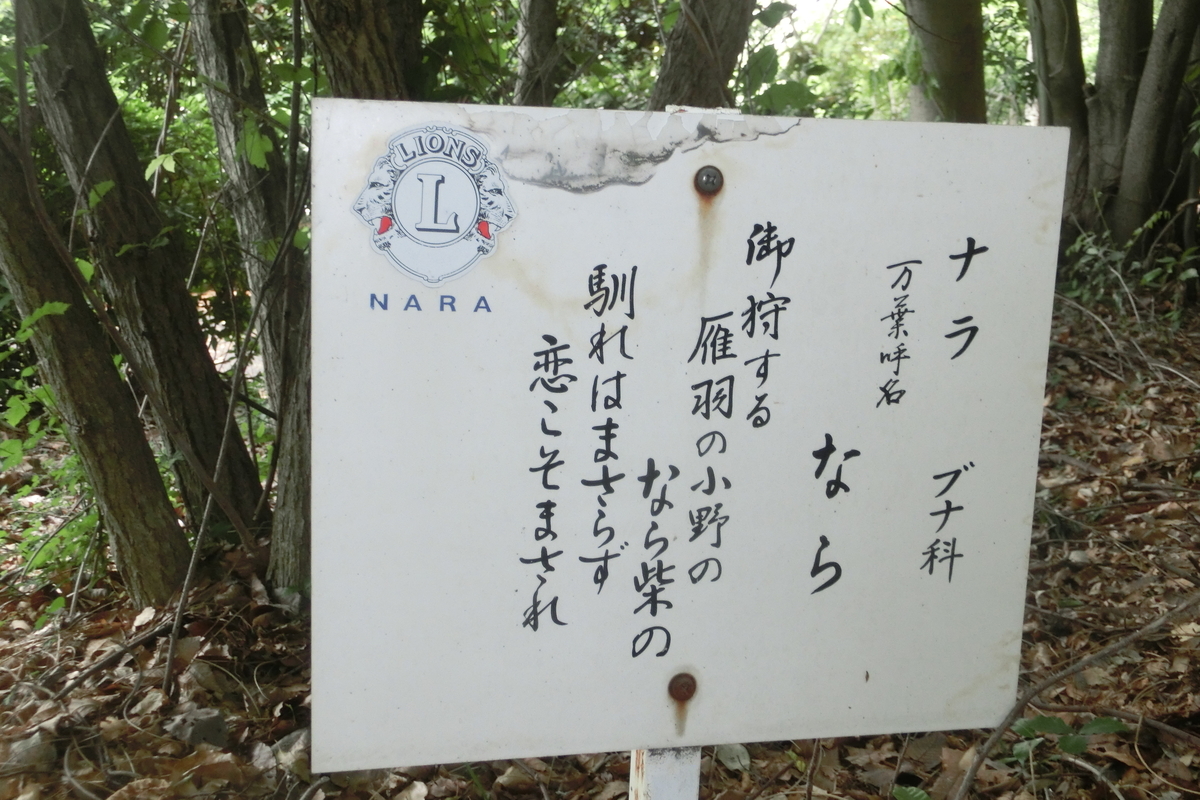 ナラ ブナ科
万葉呼名
なら
御狩する
雁羽の小野の
なら柴の
馴れはまさらず
恋こそまされ
LIONS
L
NARA